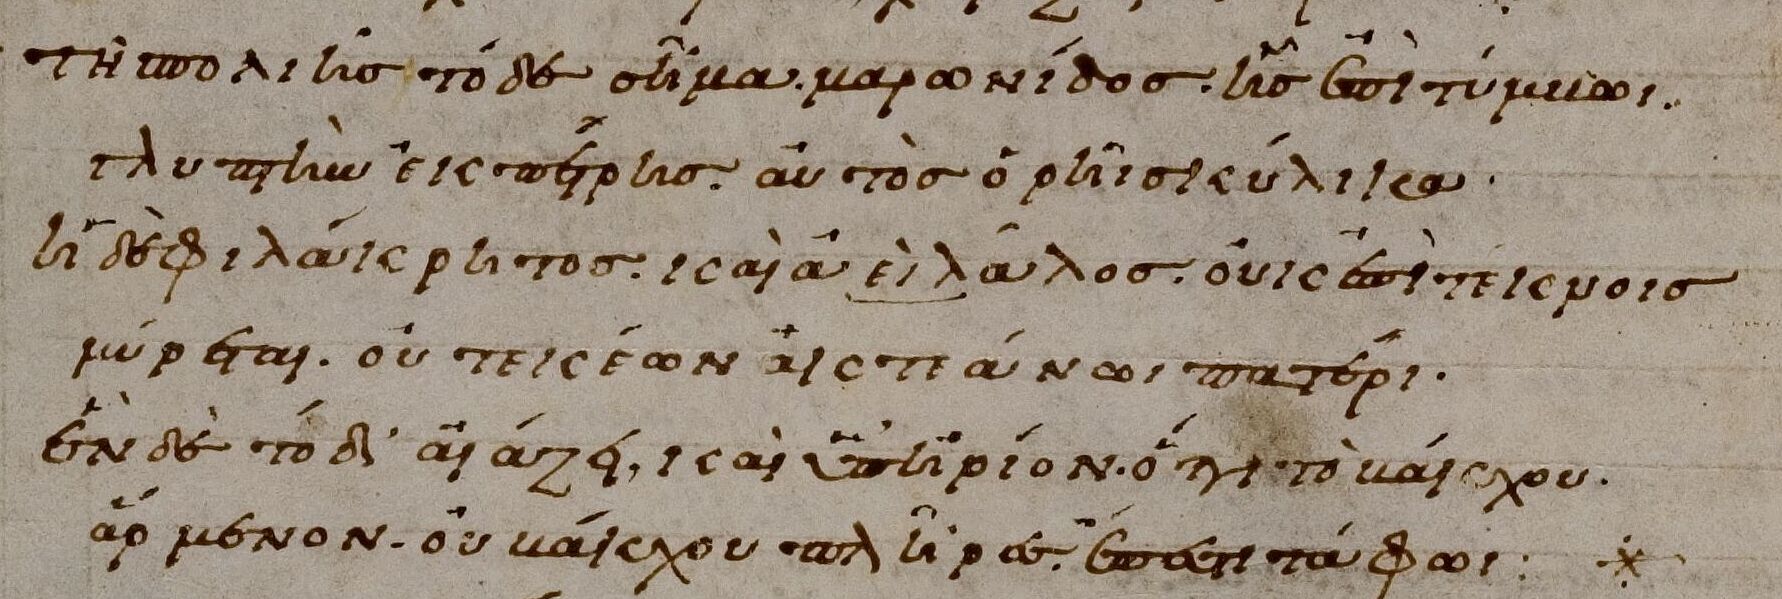 τῆσ πολιῆς τόδε σῆμα. μαρωνίδος. ἧς ἐπὶ τύμβωι.
γλυπτὴν ἐκ πέτρης. αὐτὸς ὁρῆις κύλικα.
ἡ δὲ φιλάκρητος. καὶ ἀεὶλάλος. οὐκ ἐπὶ τέκνοις
μύρεται. οὐ τεκέων ἀκτεάνωι πατέρι.
ἓν δὲ τόδ' αἰάζει, καὶ ὑπ' ἠρίον. ὅττι τὸ βάκχου.
ἄρμενον. οὐ βάκχου πλῆρες. ἔπεστι τάφωι :